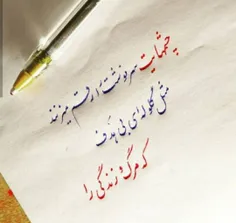 چشمهایت سرنوشت را رقم میزنند
مثل گلوله‌ای بی هدف
که مرگ و زندگی را